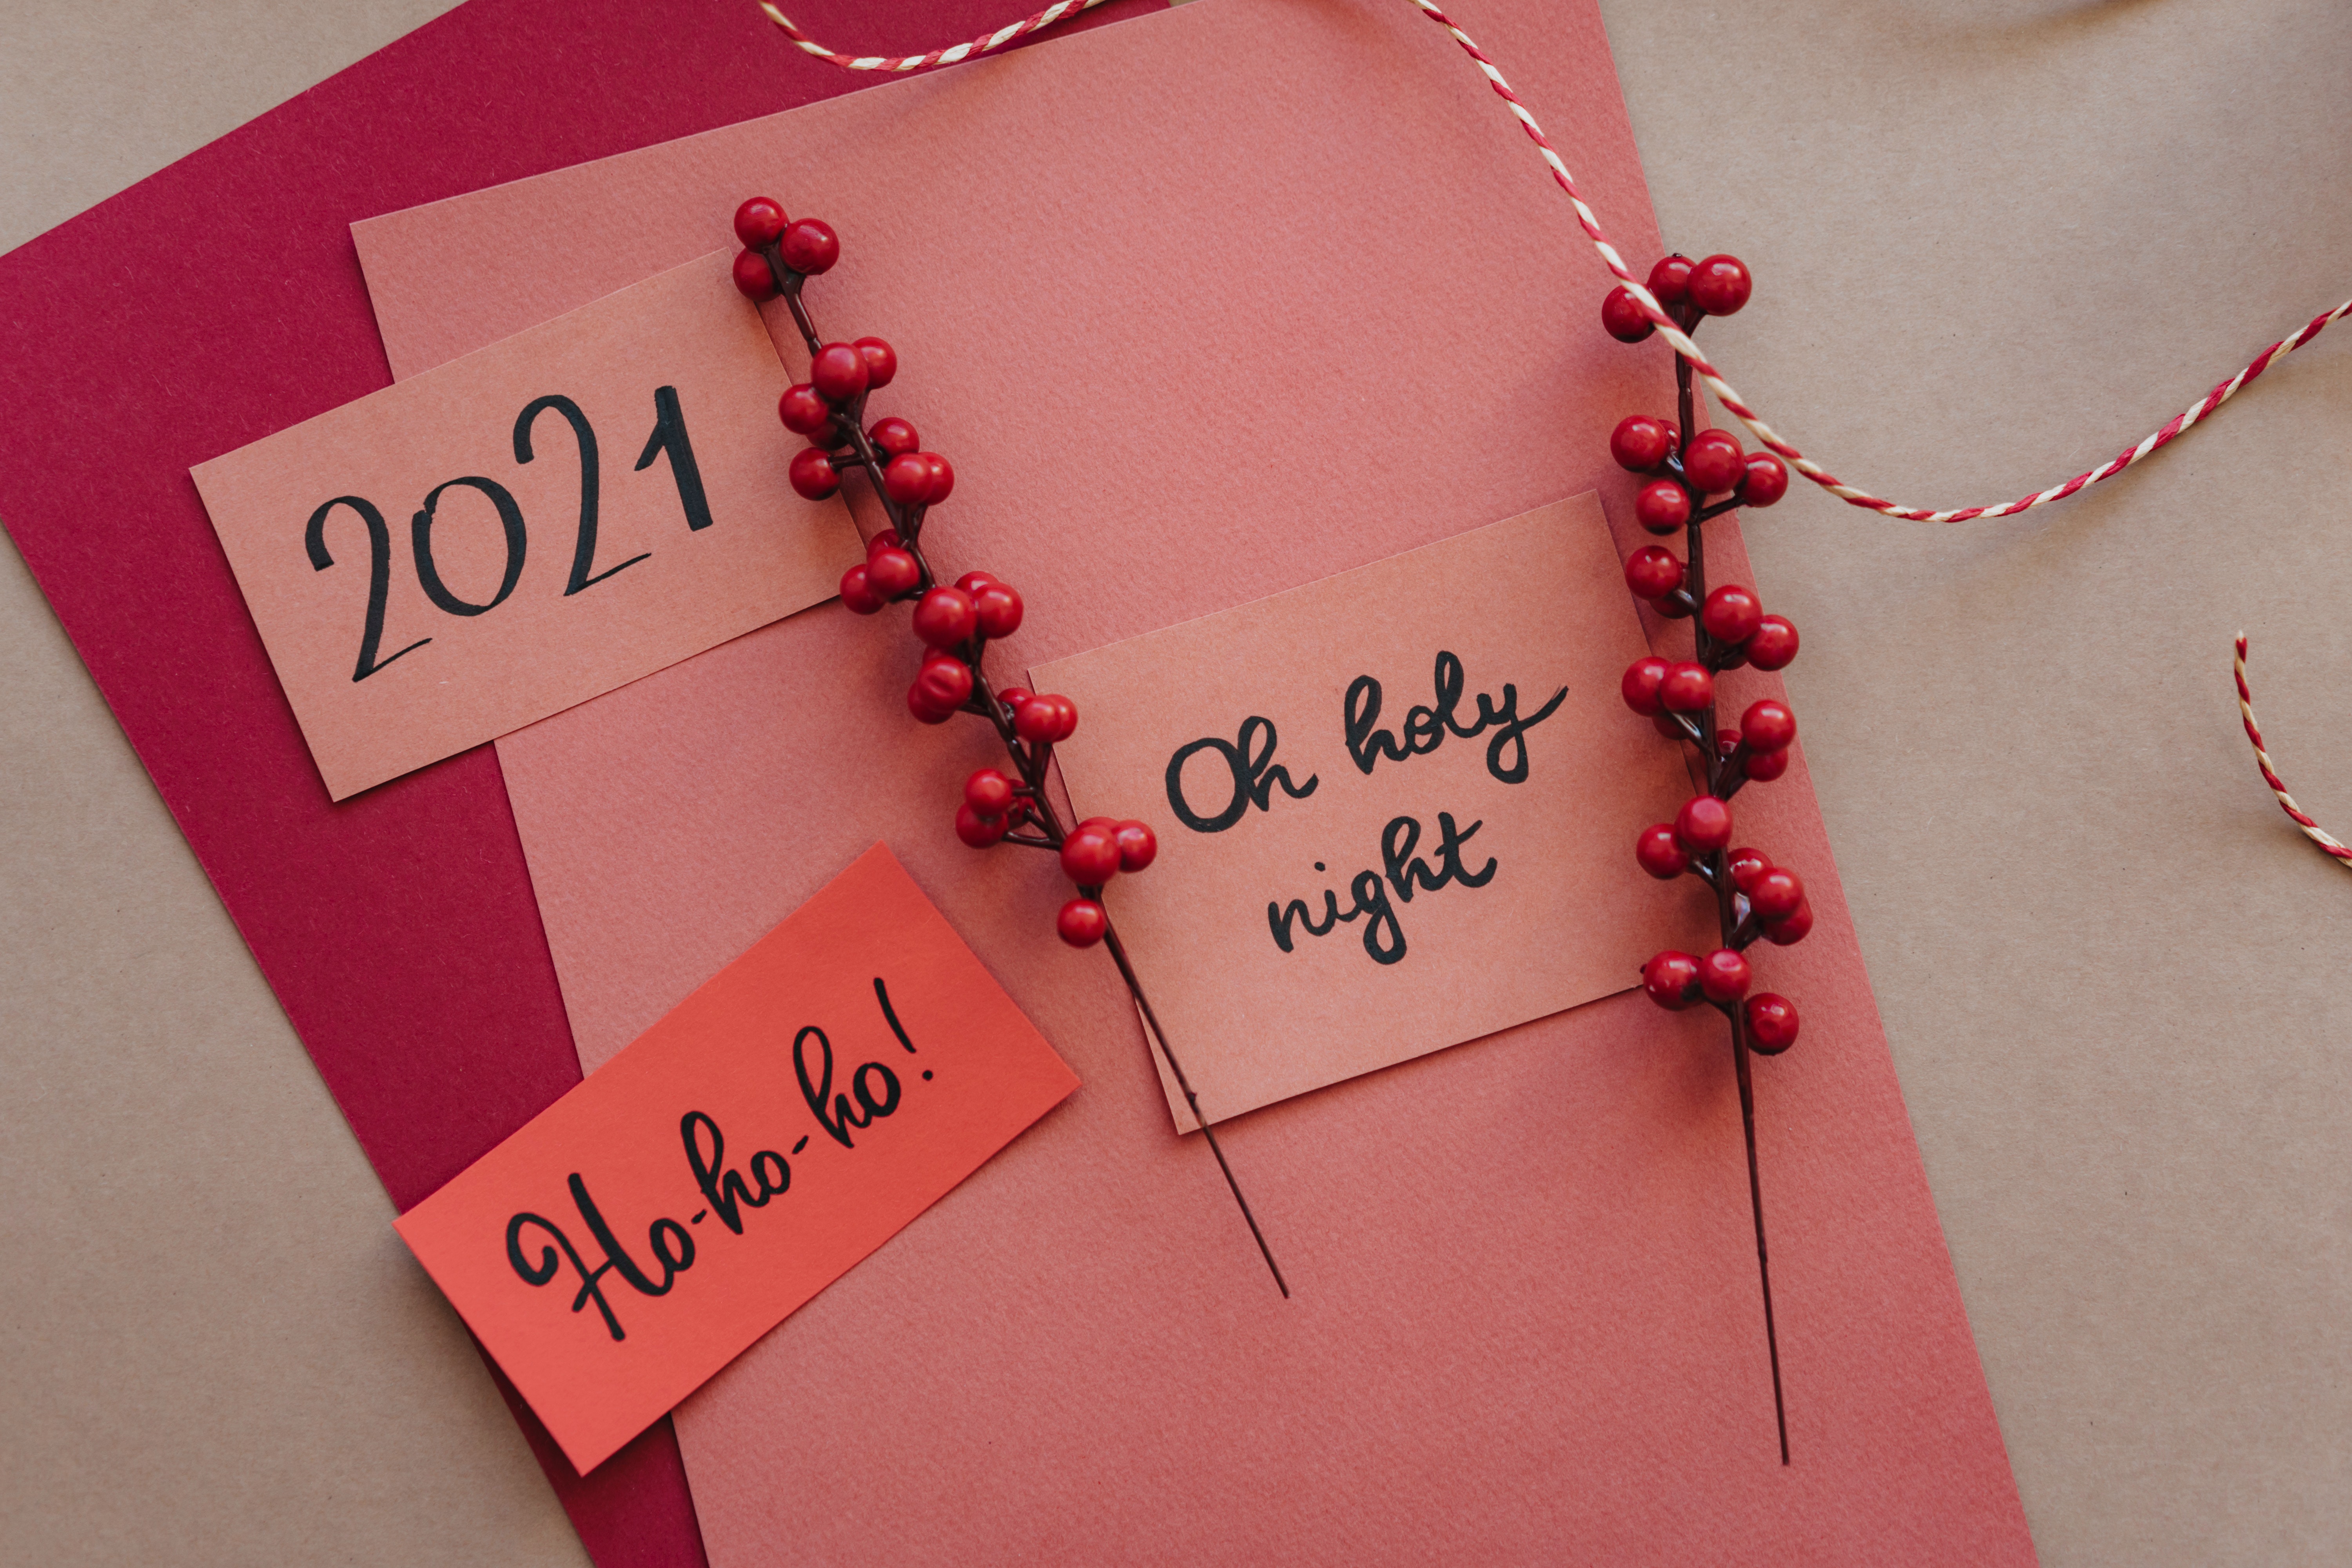 2021
Oh holy
night
Ho-ho-ho!